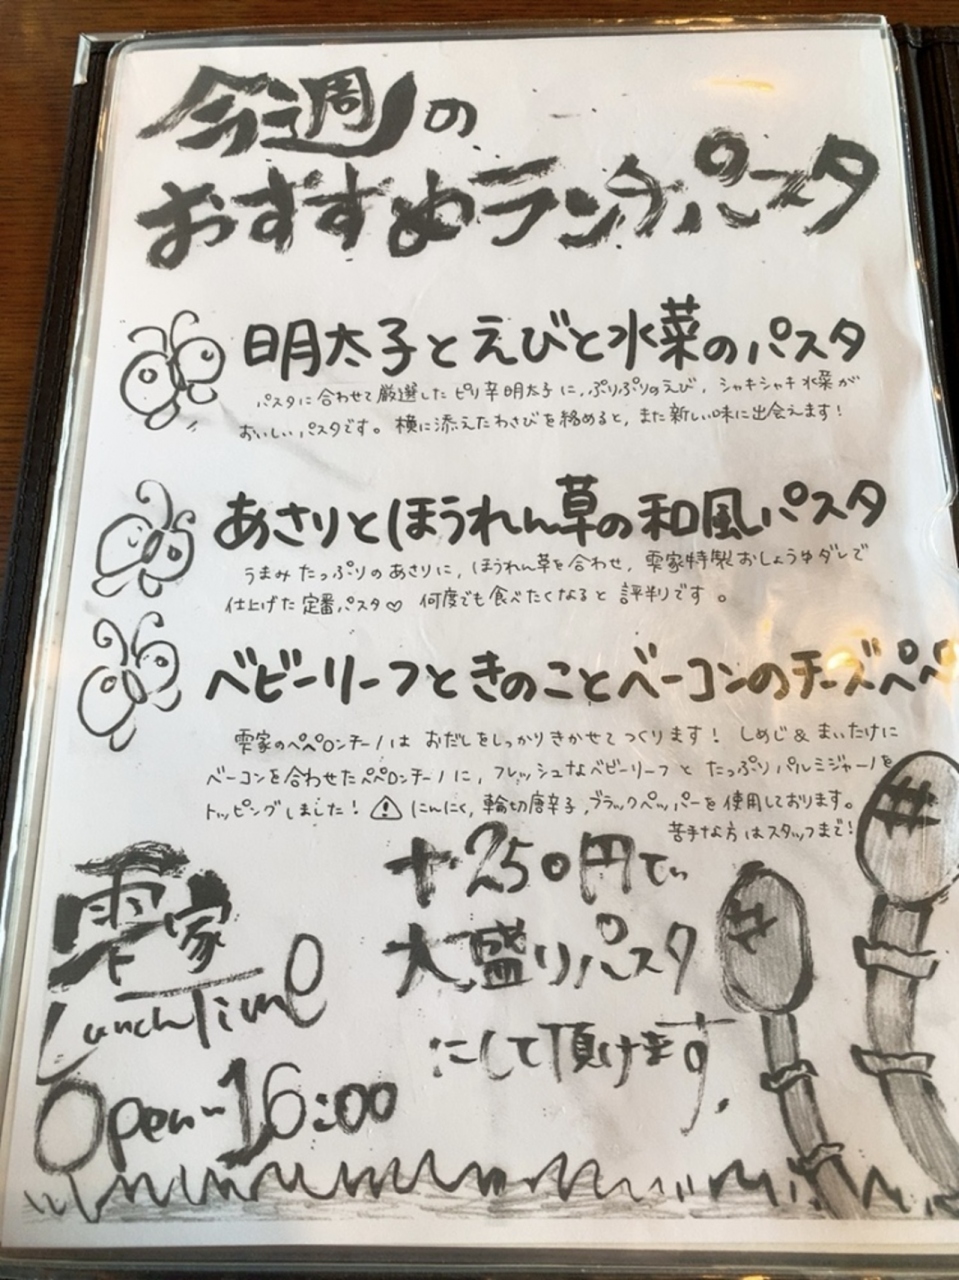 今週の
おすすめランチパスタ
明太子とえびと水菜のパスタ
パスタに合わせて厳選したピリ辛明太子に、ぷりぷりのえび、シャキシャキ水菜が
おいしいパスタです。横に添えたわさびを絡めると、また新しい味に出会えます!
あさりとほうれん草の和風パスタ
うまみたっぷりのあさりに、ほうれん草を合わせ、雫家特製おしょうゆダレで
仕上げた定番パスタ♡ 何度でも食べたくなると評判です。
ベビーリーフときのことベーコンのチーズペペ
雫家のペペロンチーノはおだしをしっかりきかせてつくります! しめじ&まいたけに
ベーコンを合わせたペペロンチーノに、フレッシュなベビーリーフとたっぷりパルミジャーノを
トッピングしました! ⚠にんにく,輪切唐辛子,ブラックペッパーを使用しております。
苦手な方はスタッフまで!
+250円で
大盛りパスタ
にして頂けます.
雫家
LunchTime
Open~16:00